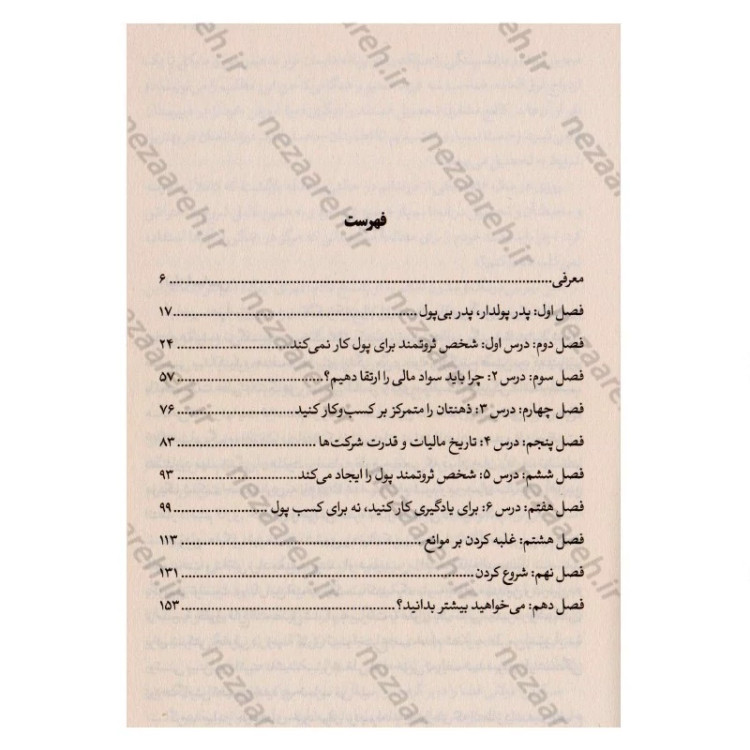 فهرست
معرفی.......................................................................................... ۶
فصل اول: پدر پولدار، پدر بی‌پول .....................................................۱۷
فصل دوم: درس اول: شخص ثروتمند برای پول کار نمی‌کند......................... ۲۴
فصل سوم: درس ۲: چرا باید سواد مالی را ارتقا دهیم؟................................ ۵۷
فصل چهارم: درس ۳: ذهنتان را متمرکز بر کسب‌وکار کنید......................... ۷۶
فصل پنجم: درس ۴: تاریخ مالیات و قدرت شرکت‌ها............................... ۸۳
فصل ششم: درس ۵: شخص ثروتمند پول را ایجاد می‌کند........................... ۹۳
فصل هفتم: درس ۶: برای یادگیری کار کنید، نه برای کسب پول .................... ۹۹
فصل هشتم: غلبه کردن بر موانع ..................................................... ۱۱۳
فصل نهم: شروع کردن ................................................................ ۱۳۱
فصل دهم: می‌خواهید بیشتر بدانید؟................................................ ۱۵۳
nezaareh.ir